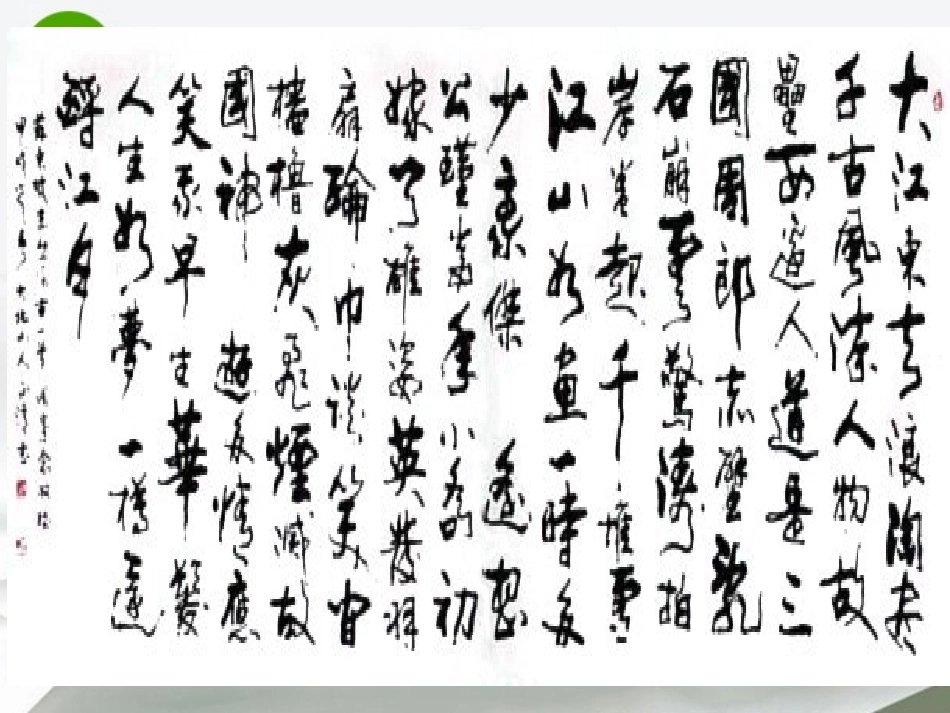 大江東去浪淘尽
千古風流人物故
壘西邊人道是三
國周郎赤壁亂
石崩雲驚濤拍
岸卷起千堆雪
江山如畫一時多
少豪傑遙想
公瑾當年小喬初
嫁了雄姿英發羽
扇綸巾談笑間
檣櫓灰飛煙滅故
國神遊多情應
笑我早生華髮
人生如夢一樽還
酹江月
蘇東坡